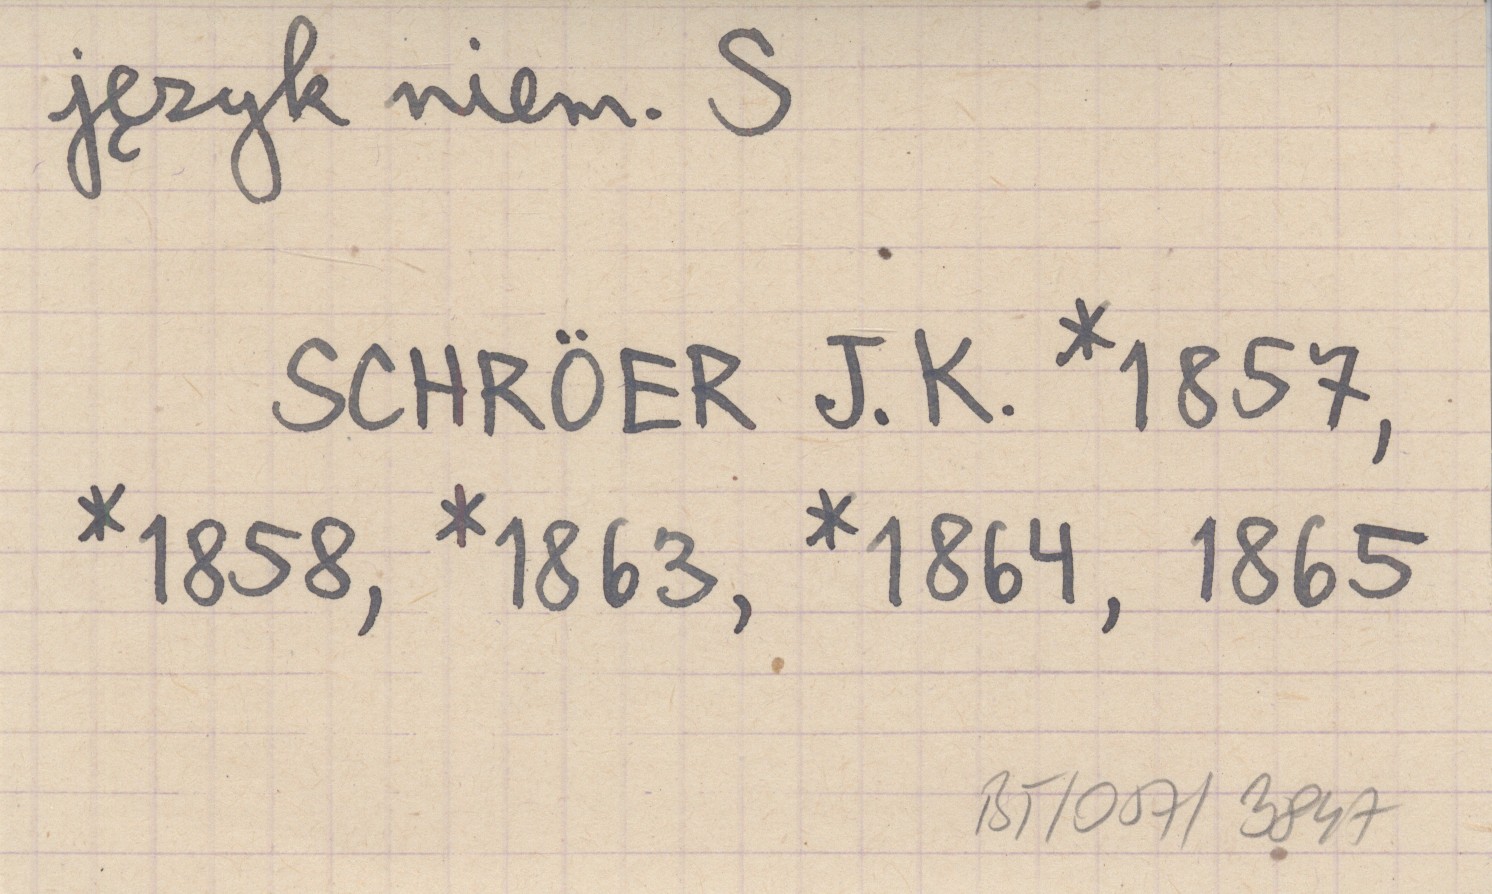 język niem. S
SCHRÖER J.K. *1857,
*1858, *1863, *1864, 1865
BT/007/ 3847